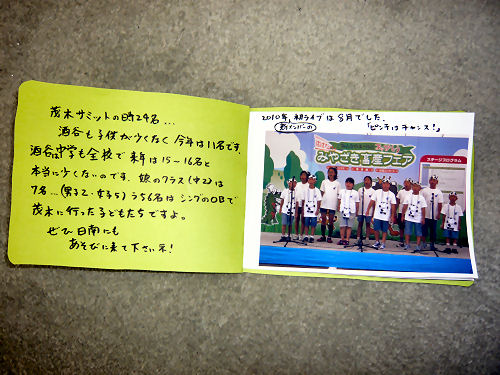 茂木サミットの時24名...
酒谷も子供が少くなく 今年は11名です
酒谷中学も全校で来年は15〜16名と
本当に少くないのです。娘のクラス(中2)は
7名...(男子2・女子5) うち6名は シングのOBで
茂木に行った子どもたちですよ。
ぜひ日南にも
あそびに来て下さい ネ!
2010年、初ライブは8月でした。
新メンバーの
「ピンチはチャンス!」
みやざき畜産フェア
ステージプログラム